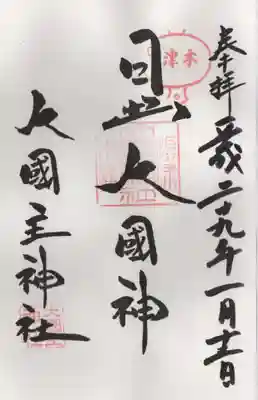 奉拝 平成二十九年一月十二日
木津
日出大國神
大國主神社